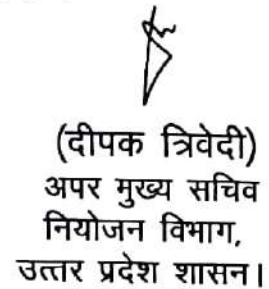 (दीपक त्रिवेदी)
अपर मुख्य सचिव
नियोजन विभाग,
उत्तर प्रदेश शासन।